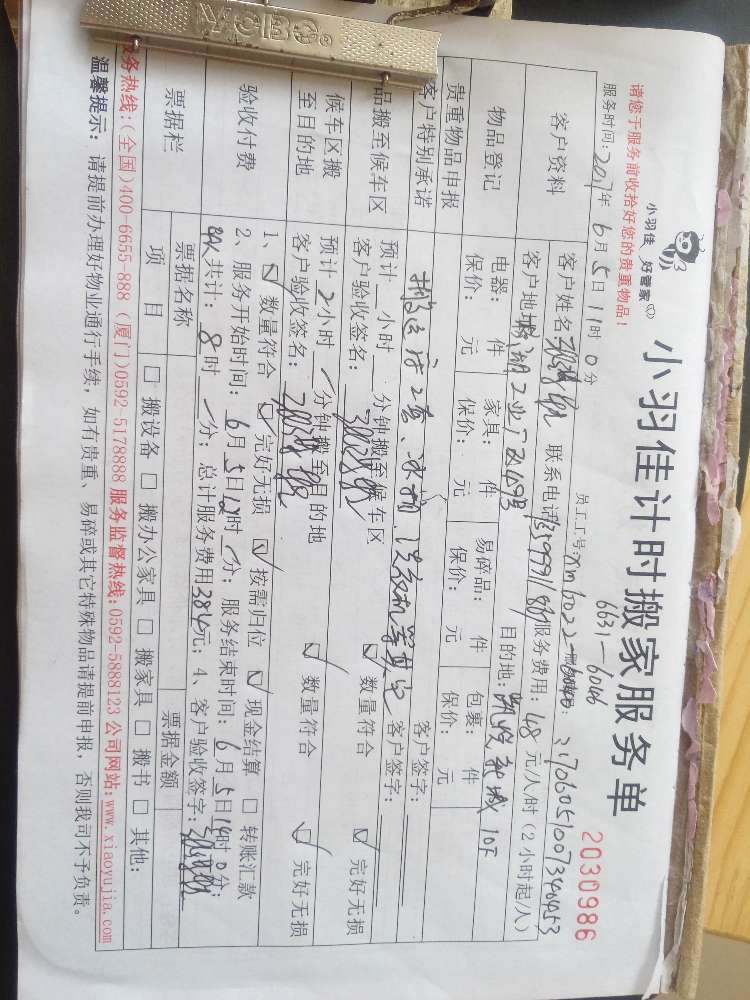 小羽佳 好管家
小羽佳计时搬家服务单
2030986
6631-6046
请您于服务前收拾好您的贵重物品!
员工工号:xm15022
服务时间:2017年6月5日11时0分
客户资料
客户姓名 联系电话 服务费用:48元/小时(2小时起/人)
客户地 工业厂 目的地: 10F
物品登记
电器: 件 家具: 件 易碎品: 件 包裹: 件
保价: 元 保价: 元 保价: 元 保价: 元
贵重物品申报
客户签字:
客户特别承诺
客户签字:
品搬至候车区
预计 小时 分钟搬至候车区 ☑数量符合 ☑完好无损
客户验收签名:
候车区搬至目的地
预计2小时 分钟搬至目的地 ☑数量符合 ☑完好无损
客户验收签名:
验收付费
1、☑数量符合 ☑完好无损 ☑按需归位 ☑现金结算 □转账汇款
2、服务开始时间:6月5日12时 分;服务结束时间:6月5日14时0分;
共计:8时 分;总计服务费用384元;4、客户验收签字:
票据栏
票据名称 票据金额
项目 □搬设备 □搬办公家具 □搬家具 □搬书 □其他:
务热线:(全国)400-6655-888 (厦门)0592-5178888 服务监督热线:0592-5888123 公司网站:www.xiaoyujia.com
温馨提示: 请提前办理好物业通行手续,如有贵重、易碎或其它特殊物品请提前申报,否则我司不予负责。